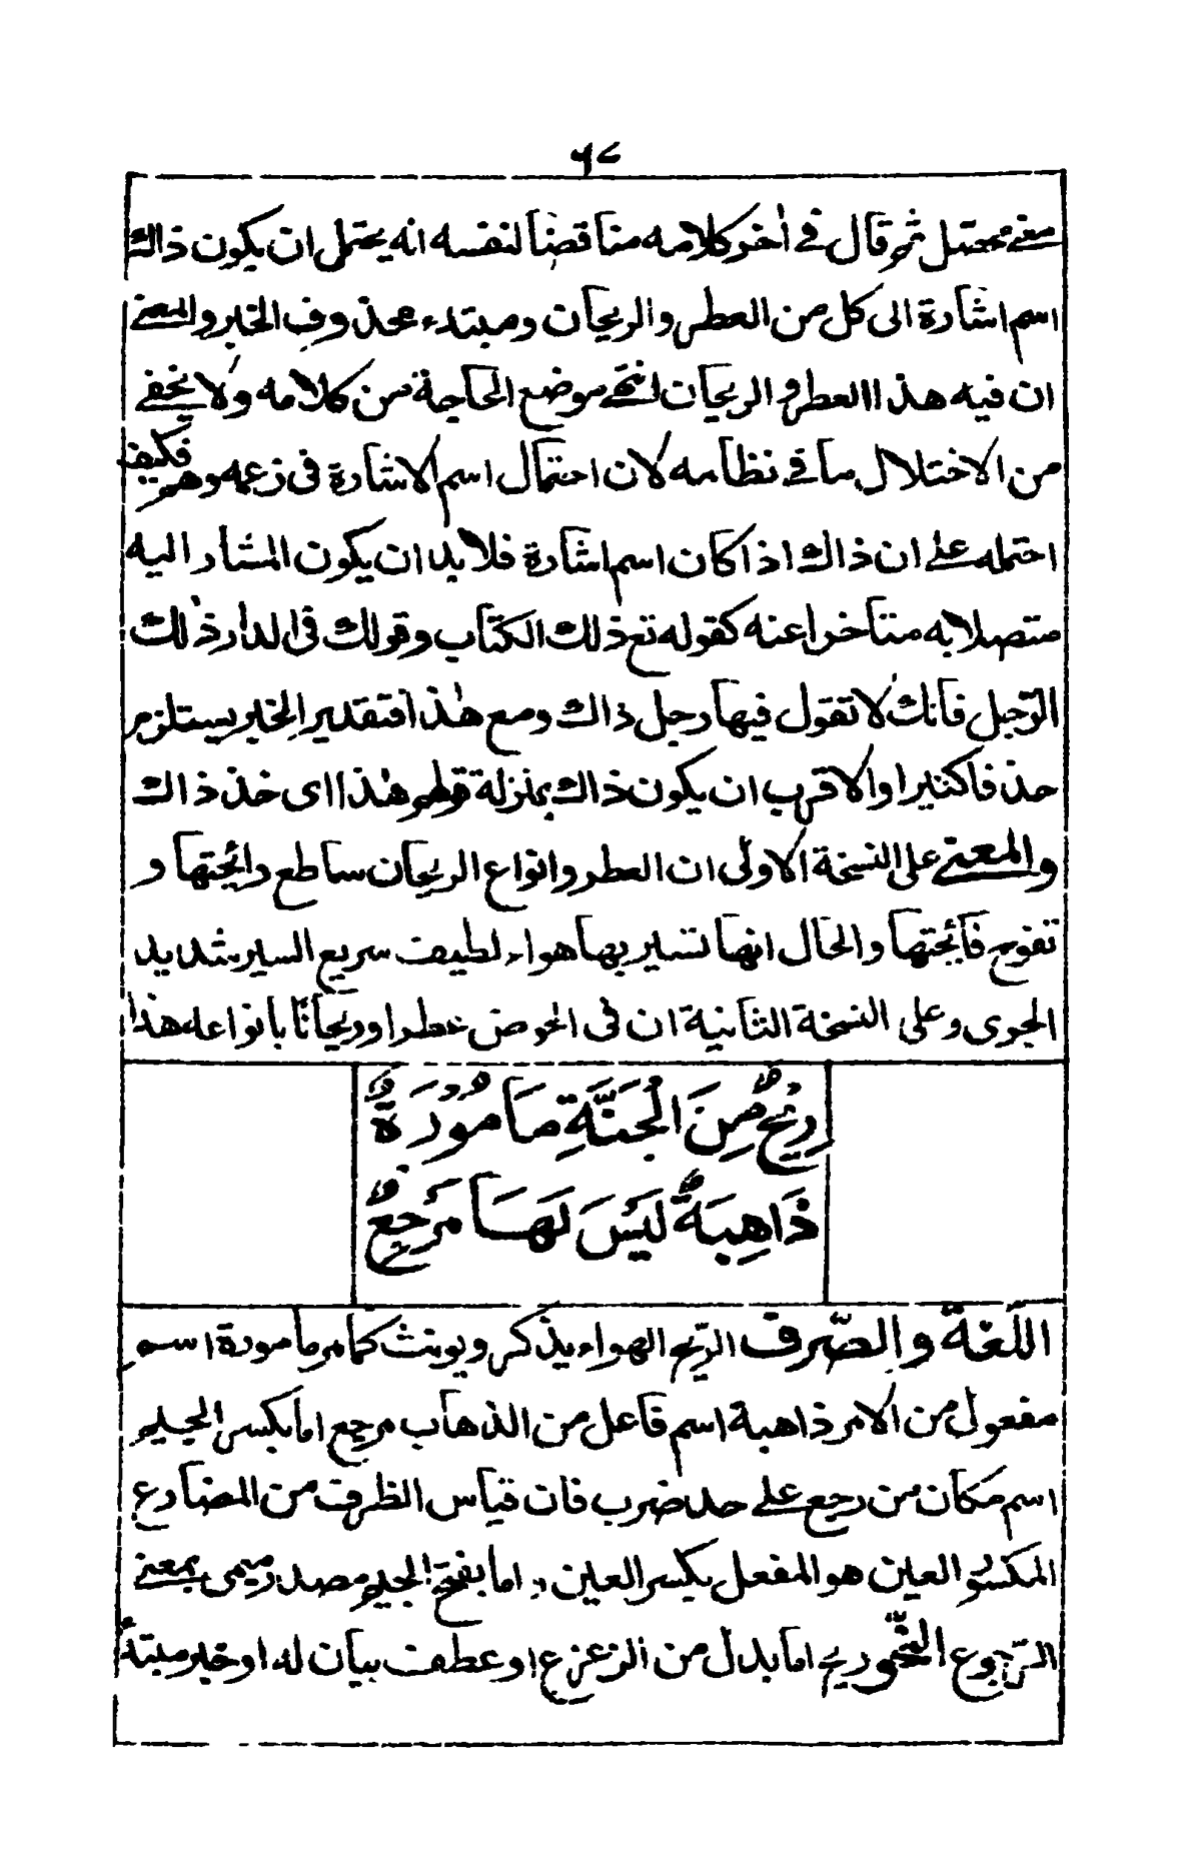 ٦٧
معنے محتمل ثم قال فے اٰخر كلامه مناقضا لنفسه انه يحتمل ان يكون ذاك
اسم اشارة الى كل من العطر والريحان ومبتدء محذوف الخبر والمعنے
ان فيه هذا العطر والريحان انتهٰے موضع الحاجة من كلامه ولا يخفے
من الاختلال ما فے نظامه لان احتمال اسم الاشارة فى زعمه وهو فكيف
احتمله علے ان ذاك اذا كان اسم اشارة فلا بد ان يكون المشار اليه
متصلا به متاخرا عنه كقوله تع ذلك الكتاب وقولك فى الدار ذٰلك
الرّجل فانك لا تقول فيها رجل ذاك ومع هٰذا فتقدير الخبر يستلزم
حذفا كثيرا والاقرب ان يكون ذاك بمنزلة قولهم هٰذا اى خذ ذاك
والمعنے على النسخة الاولٰى ان العطر وانواع الريحان ساطع رائحتها و
تفوح فائحتها والحال انها تسير بها هواء لطيف سريع السير شديد
الجرى وعلى النسخة الثانية ان فى الحوض عطرا وريحانًا بانواعه هذا
رِيْحٌ مِنَ الْجَنَّةِ مَامُوْرَةٌ
ذَاهِبَةٌ لَيْسَ لَهَا مَرْجِعٌ
اللّغة والصّرف الرّيح الهواء يذكر ويونث كما مر مامورة اسم
مفعول من الامر ذاهبة اسم فاعل من الذهاب مرجع اما بكسر الجيم
اسم مكان من رجع علے حد ضرب فان قياس الظرف من المضارع
المكسور العين هو المفعل بكسر العين و اما بفتح الجيم مصدر ميمى بمعنے
الرّجوع النّحو ريح اما بدل من الزعزع او عطف بيان له او خبر مبتدأ